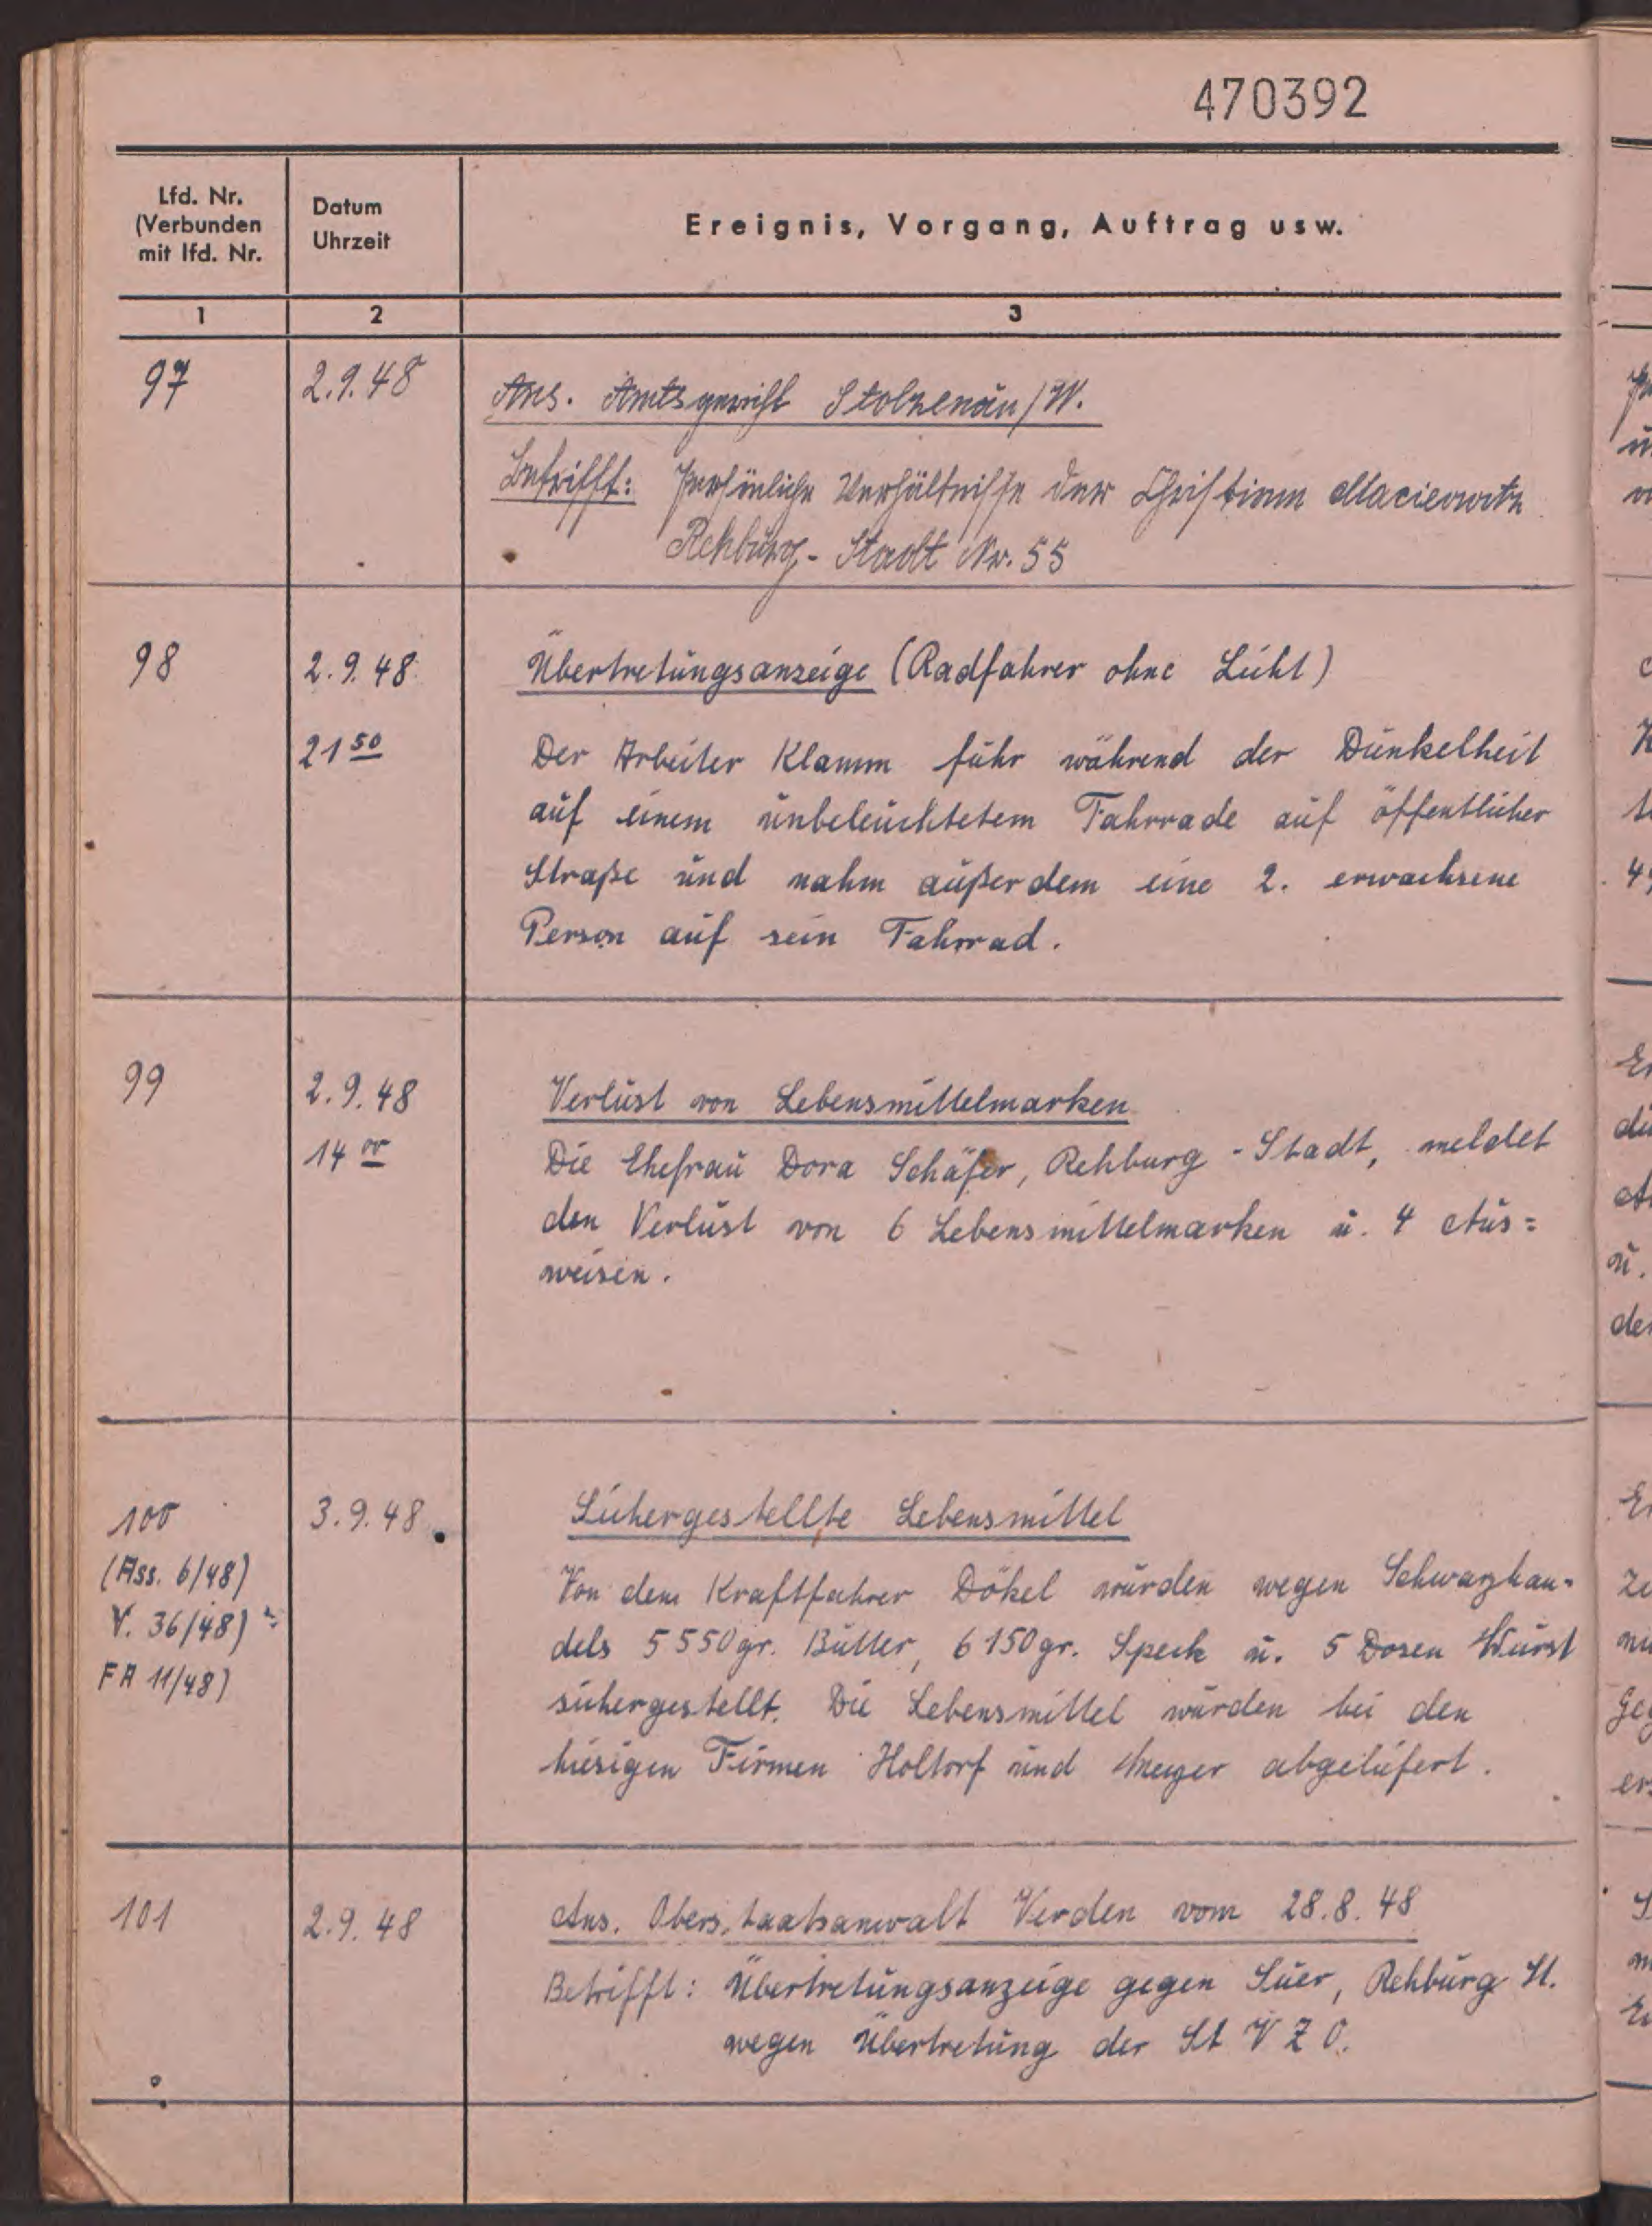 470392
Lfd. Nr.
(Verbunden
mit lfd. Nr.
Datum
Uhrzeit
Ereignis, Vorgang, Auftrag usw.
1 2 3
97 2.9.48 Ans. Amtsgericht Stolzenau/W.
Betrifft: Persönliche Verhältnisse der Christine Macierwitz
Rehburg-Stadt Nr. 55
98 2.9.48 Übertretungsanzeige (Radfahrer ohne Licht)
21 50 Der Arbeiter Klamm fuhr während der Dunkelheit
auf einem unbeleuchtetem Fahrrade auf öffentlicher
Straße und nahm außerdem eine 2. erwachsene
Person auf sein Fahrrad.
99 2.9.48 Verlust von Lebensmittelmarken
14 00 Die Ehefrau Dora Schäfer, Rehburg-Stadt, meldet
den Verlust von 6 Lebensmittelmarken u. 4 Aus=
weisen.
100 3.9.48 Sichergestellte Lebensmittel
(Ass. 6/48) Von dem Kraftfahrer Dökel wurden wegen Schwarzhan-
V. 36/48) dels 5550gr. Butter, 6150gr. Speck u. 5 Dosen Wurst
FA 11/48) sichergestellt. Die Lebensmittel wurden bei den
hiesigen Firmen Holtorf und Meyer abgeliefert.
101 2.9.48 Ans. Oberstaatsanwalt Verden vom 28.8.48
Betrifft: Übertretungsanzeige gegen Suer, Rehburg St.
wegen Übertretung der St V Z O.